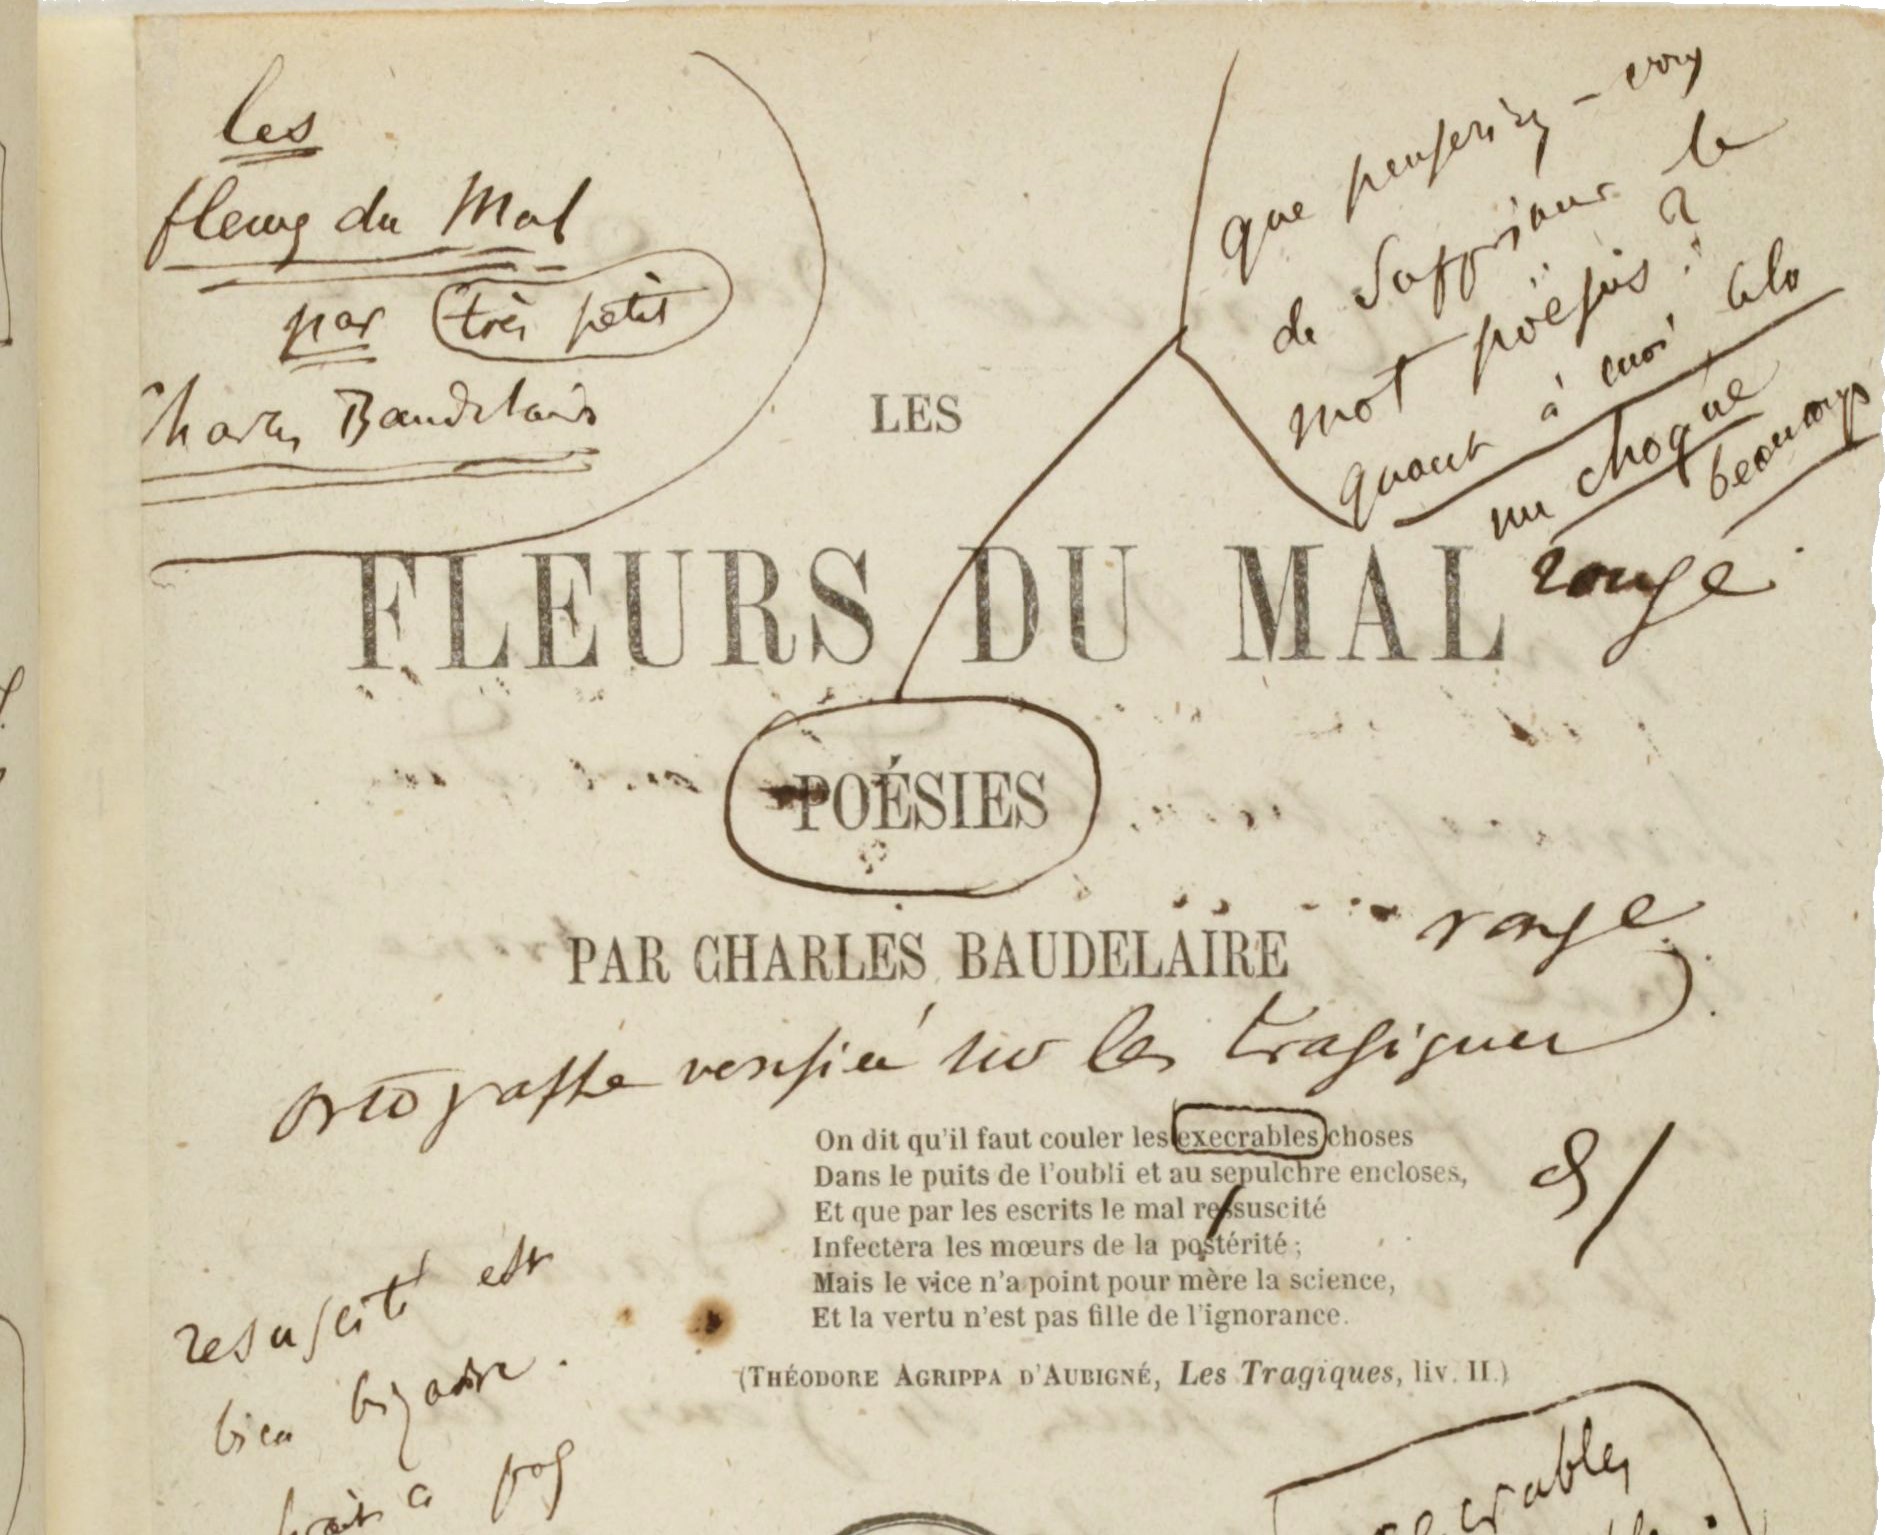 les
fleurs du Mal
par très petit
Charles Baudelaire
que penseriez-vous
de supprimer le
mot poësies ?
quant à moi cela
me choque
beaucoup
rouge
LES
FLEURS DU MAL
POÉSIES
rouge
PAR CHARLES BAUDELAIRE
ortografhe verifiée sur les tragiques
On dit qu'il faut couler les execrables choses
Dans le puits de l'oubli et au sepulchre encloses,
Et que par les escrits le mal ressuscité
Infectera les mœurs de la postérité ;
Mais le vice n'a point pour mère la science,
Et la vertu n'est pas fille de l'ignorance.
(THÉODORE AGRIPPA D'AUBIGNÉ, Les Tragiques, liv. II.)
resuscité est
bien bizarre.